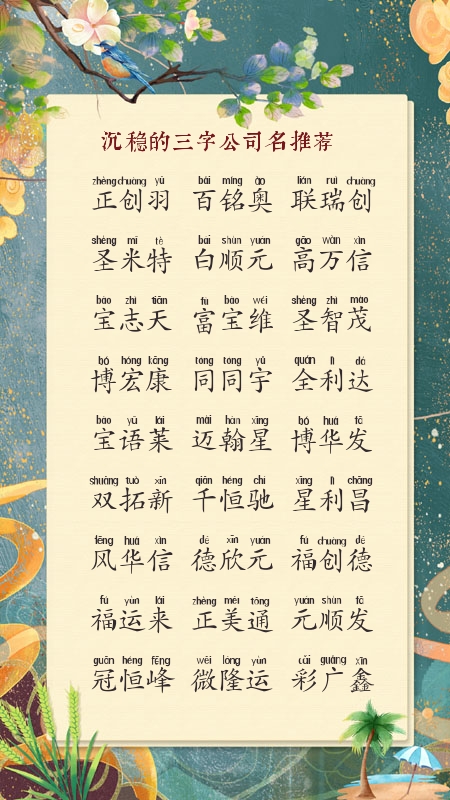 沉稳的三字公司名推荐
zhèng chuàng yǔ bǎi míng ào lián ruì chuàng
正创羽 百铭奥 联瑞创
shèng mǐ tè bái shùn yuán gāo wàn xìn
圣米特 白顺元 高万信
bǎo zhì tiān fù bǎo wéi shèng zhì mào
宝志天 富宝维 圣智茂
bó hóng kāng tóng tóng yǔ quán lì dá
博宏康 同同宇 全利达
bǎo yǔ lái mài hàn xīng bó huá fā
宝语莱 迈翰星 博华发
shuāng tuò xīn qiān héng chí xīng lì chāng
双拓新 千恒驰 星利昌
fēng huá xìn dé xīn yuán fú chuàng dé
风华信 德欣元 福创德
fú yùn lái zhèng měi tōng yuán shùn fā
福运来 正美通 元顺发
guān héng fēng wēi lóng yùn cǎi guǎng xīn
冠恒峰 微隆运 彩广鑫